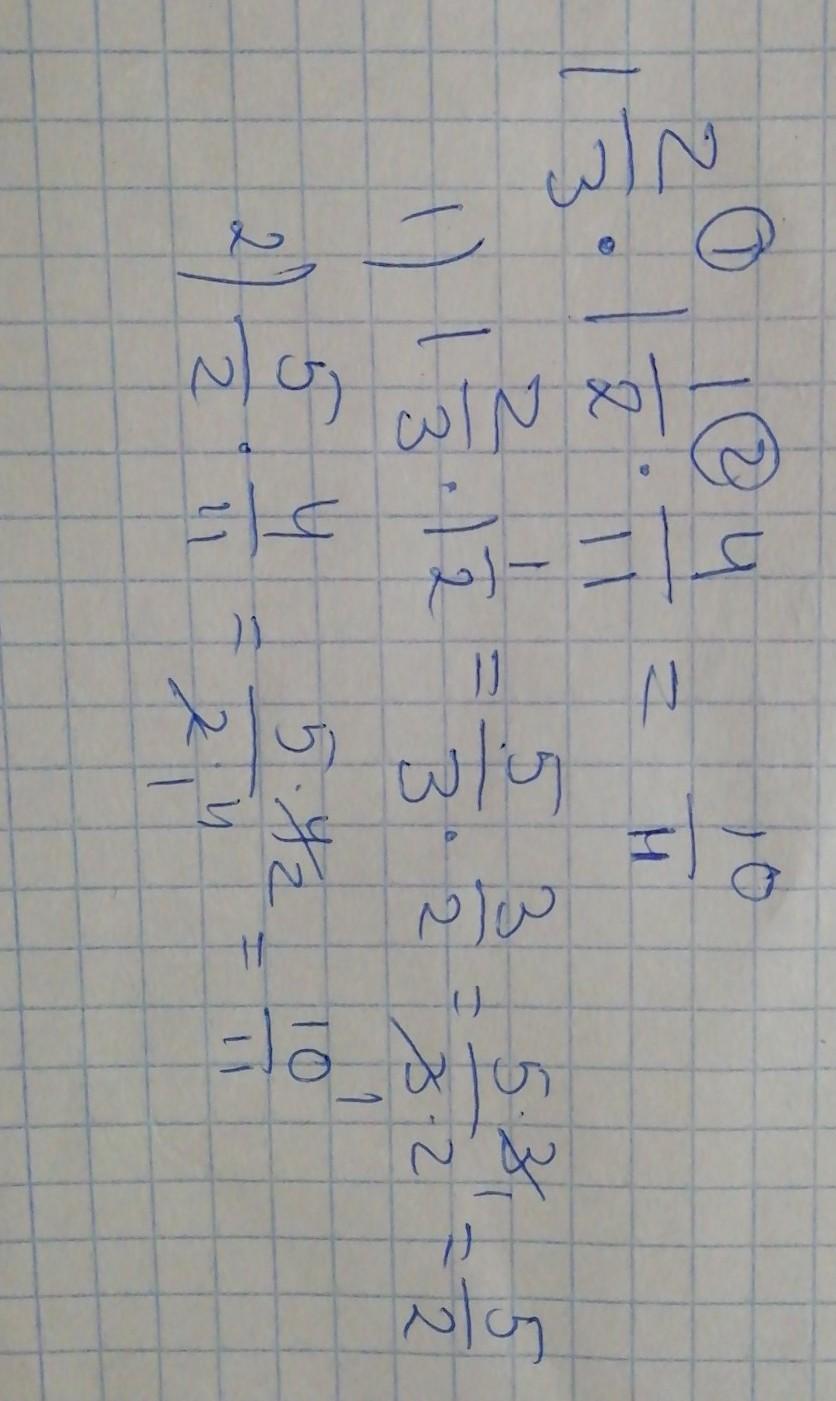 1 2/3 ① · 1 1/2 ② · 4/11 = 10/11
1) 1 2/3 · 1 1/2 = 5/3 · 3/2 = 5·3 1/3·2 = 5/2
2) 5/2 · 4/11 = 5·4 2/2 1·11 = 10/11